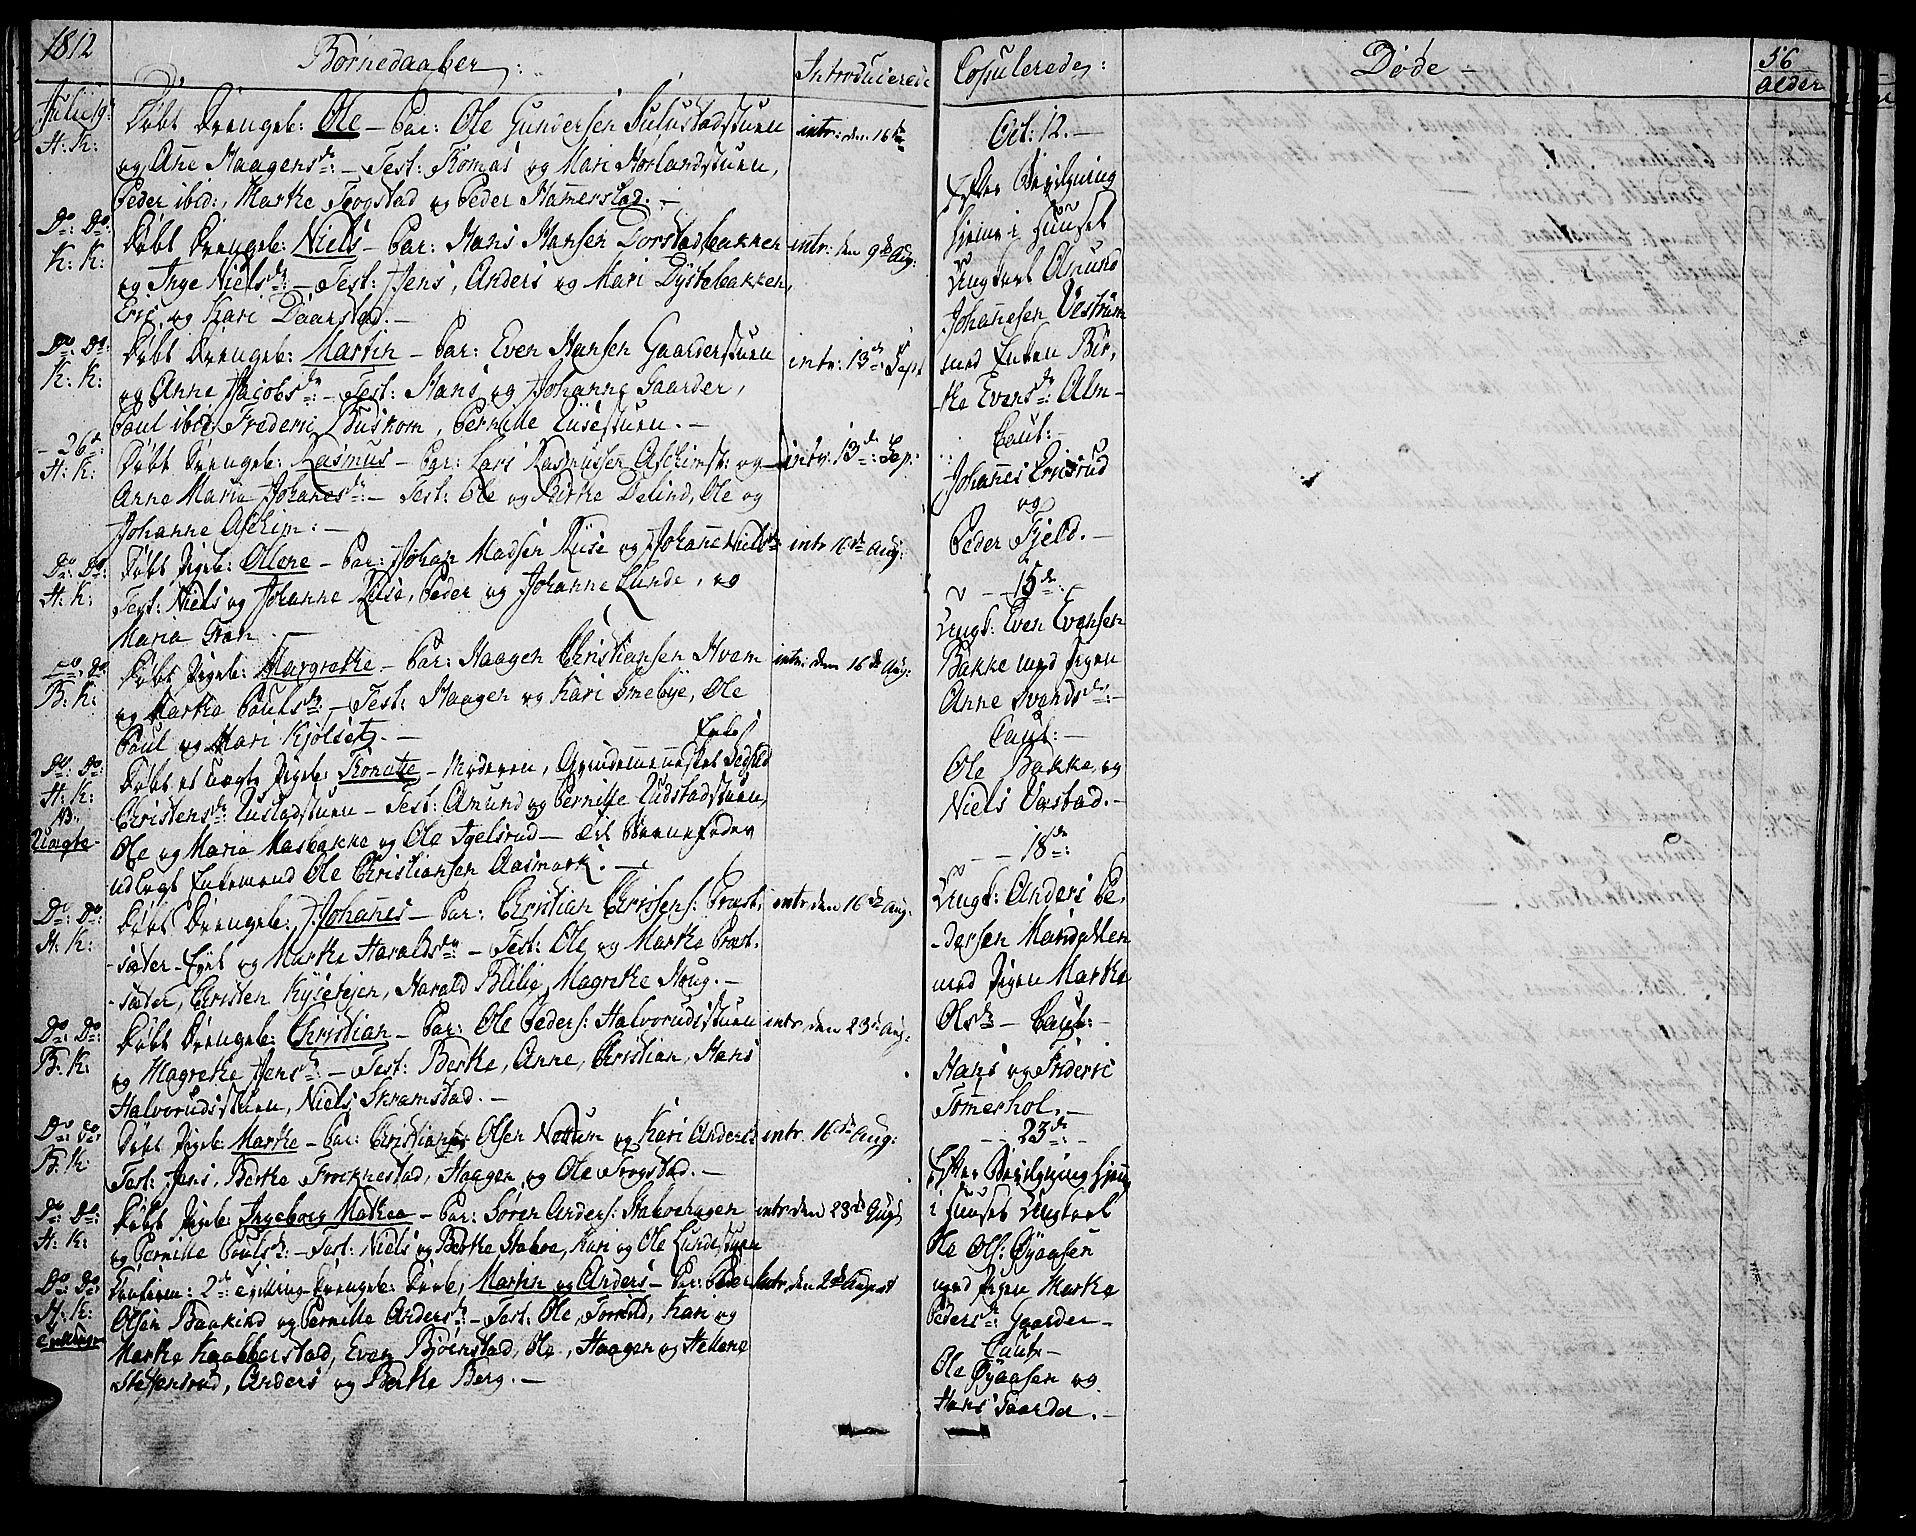 1812
Børnedaaber:
Introducerede
Julii 19.
H: K:
Døbt Drengeb: Ole – Par: Ole Gundersen Sulustadstuen
og Ane Haagensdr: – Test: Tomas og Mari Horlandstuen,
Peder ibid:, Marthe Trogstad og Peder Hamerstad. –
intr: den 16de
Do: Do:
K: K:
Døbt Drengeb: Niels – Par: Hans Hansen Dorstadbakken
og Inge Nielsdr: – Test: Jens, Anders og Mari Dystebakken,
Eric og Kari Daarstad. –
intr: den 9de Aug:
Do: Do:
K: K:
Døbt Drengeb: Martin – Par: Even Hansen Gaarderstuen
og Anne Jacobsdr: – Test: Hans og Johanne Gaarder,
Poul ibid, Frederic Buskom, Pernille Lusestuen. –
intr: 13de Sept
– 26de
H: K:
Døbt Drengeb: Rasmus – Par: Lars Rasmussen Aschimst: og
Anne Maria Johanesdr: – Test: Ole og Berthe Delind, Ole og
Johanne Aschim: –
intr: 13de: Sep:
Do: Do:
H: K:
Døbt Pigeb: Ollene – Par: Johan Madsen Ruse og Johane Nielsdr:
Test: Niels og Johanne Ruse, Peder og Johanne Lunde, og
Maria Tron. –
intr 16de Aug:
Do: Do
B: K:
Døbt Pigeb: Margrethe – Par: Haagen Christiansen Hvam
og Marthe Poulsdr: – Test: Haagen og Kari Smebye, Ole
Poul og Mari Kjølset. –
intr: den 16de Aug:
Do: Do:
H: K:
NB.
Uægte
Døbt et uægte Pigeb: Tronette – Moderen, Qvindemennesket Sedsled
Christensdr: Rustadstuen – Test: Amund og Pernille Rudstadstuen,
Ole og Maria Masbakke og Ole Igelsrud – Til Barnefader
udlagt Enkemand Ole Christiansen Aasmark. –
Do: Do:
H: K:
Døbt Drengeb: Johanes – Par: Christian Christens: Præst-
sæter-Eyet og Marthe Haraldsdr: – Test: Ole og Marthe Præst-
sæter, Christen Kysevejen, Harald Blilie, Magrethe Houg. –
intr den 16de Aug:
Do: Do:
B: K:
Døbt Drengeb: Christian – Par: Ole Peders: Halvorudsstuen
og Magrethe Jensdr: – Test: Berthe, Anne, Christian, Hans
Halvorudsstuen, Niels Skramstad. –
intr den 23de Aug:
Do: Do:
B: K:
Døbt Pigeb: Marthe – Par: Christian Olsen Nottum og Kari Andersdr:
Test: Jens, Berthe Frocknestad, Haagen og Ole Trogstad. –
intr 16de Aug:
Do: Do:
H: K:
Døbt Pigeb: Ingeborg Mathea – Par: Søren Anders: Stabohagen
og Pernille Poulsdr: – Test: Niels og Berthe Staboe, Kari og Ole Lundestuen
intr den 23de Aug:
Do: Do
H: K:
Tvillinger
2de Tvilling Drengeb: Døbt, Martin og Anders – Par: Peder
Olsen Baakind og Pernille Andersdr: – Test: Ole, Tomild, Kari og
Marthe Kaabberstad, Even Bjørnstad, Ole, Haagen og Hellene
Steffensrud, Anders og Berthe Berg. –
Intr: den 2de August
Copulerede:
Oct: 12. –
Efter Bevilgning
hjeme i Huuset
Ungkarl Amund
Johanesen Vestrum
med Enken Bir-
the Evensdr: Alm –
Caut: –
Johanes Ericsrud
og
Peder Fjeld. –
– 15de: –
Ungk: Even Evensen
Bakke med Pigen
Anne Svendsdr: –
Caut: –
Ole Bakke, og
Niels Vestad. –
– – 18de:
Ungk: Anders Pe-
dersen Mandalken
med Pigen Marthe
Olsdr – Caut: –
Hans og Frideric
Tomerhol. –
– 23de: –
Efter Bevilgning hjem
i Huuset Ungkarl
Ole Ols: Øyaasen
med Pigen Marthe
Pedersdr: Gaarder –
Caut: –
Ole Øyaasen og
Hans Gaarder. –
Døde –
56
Alder